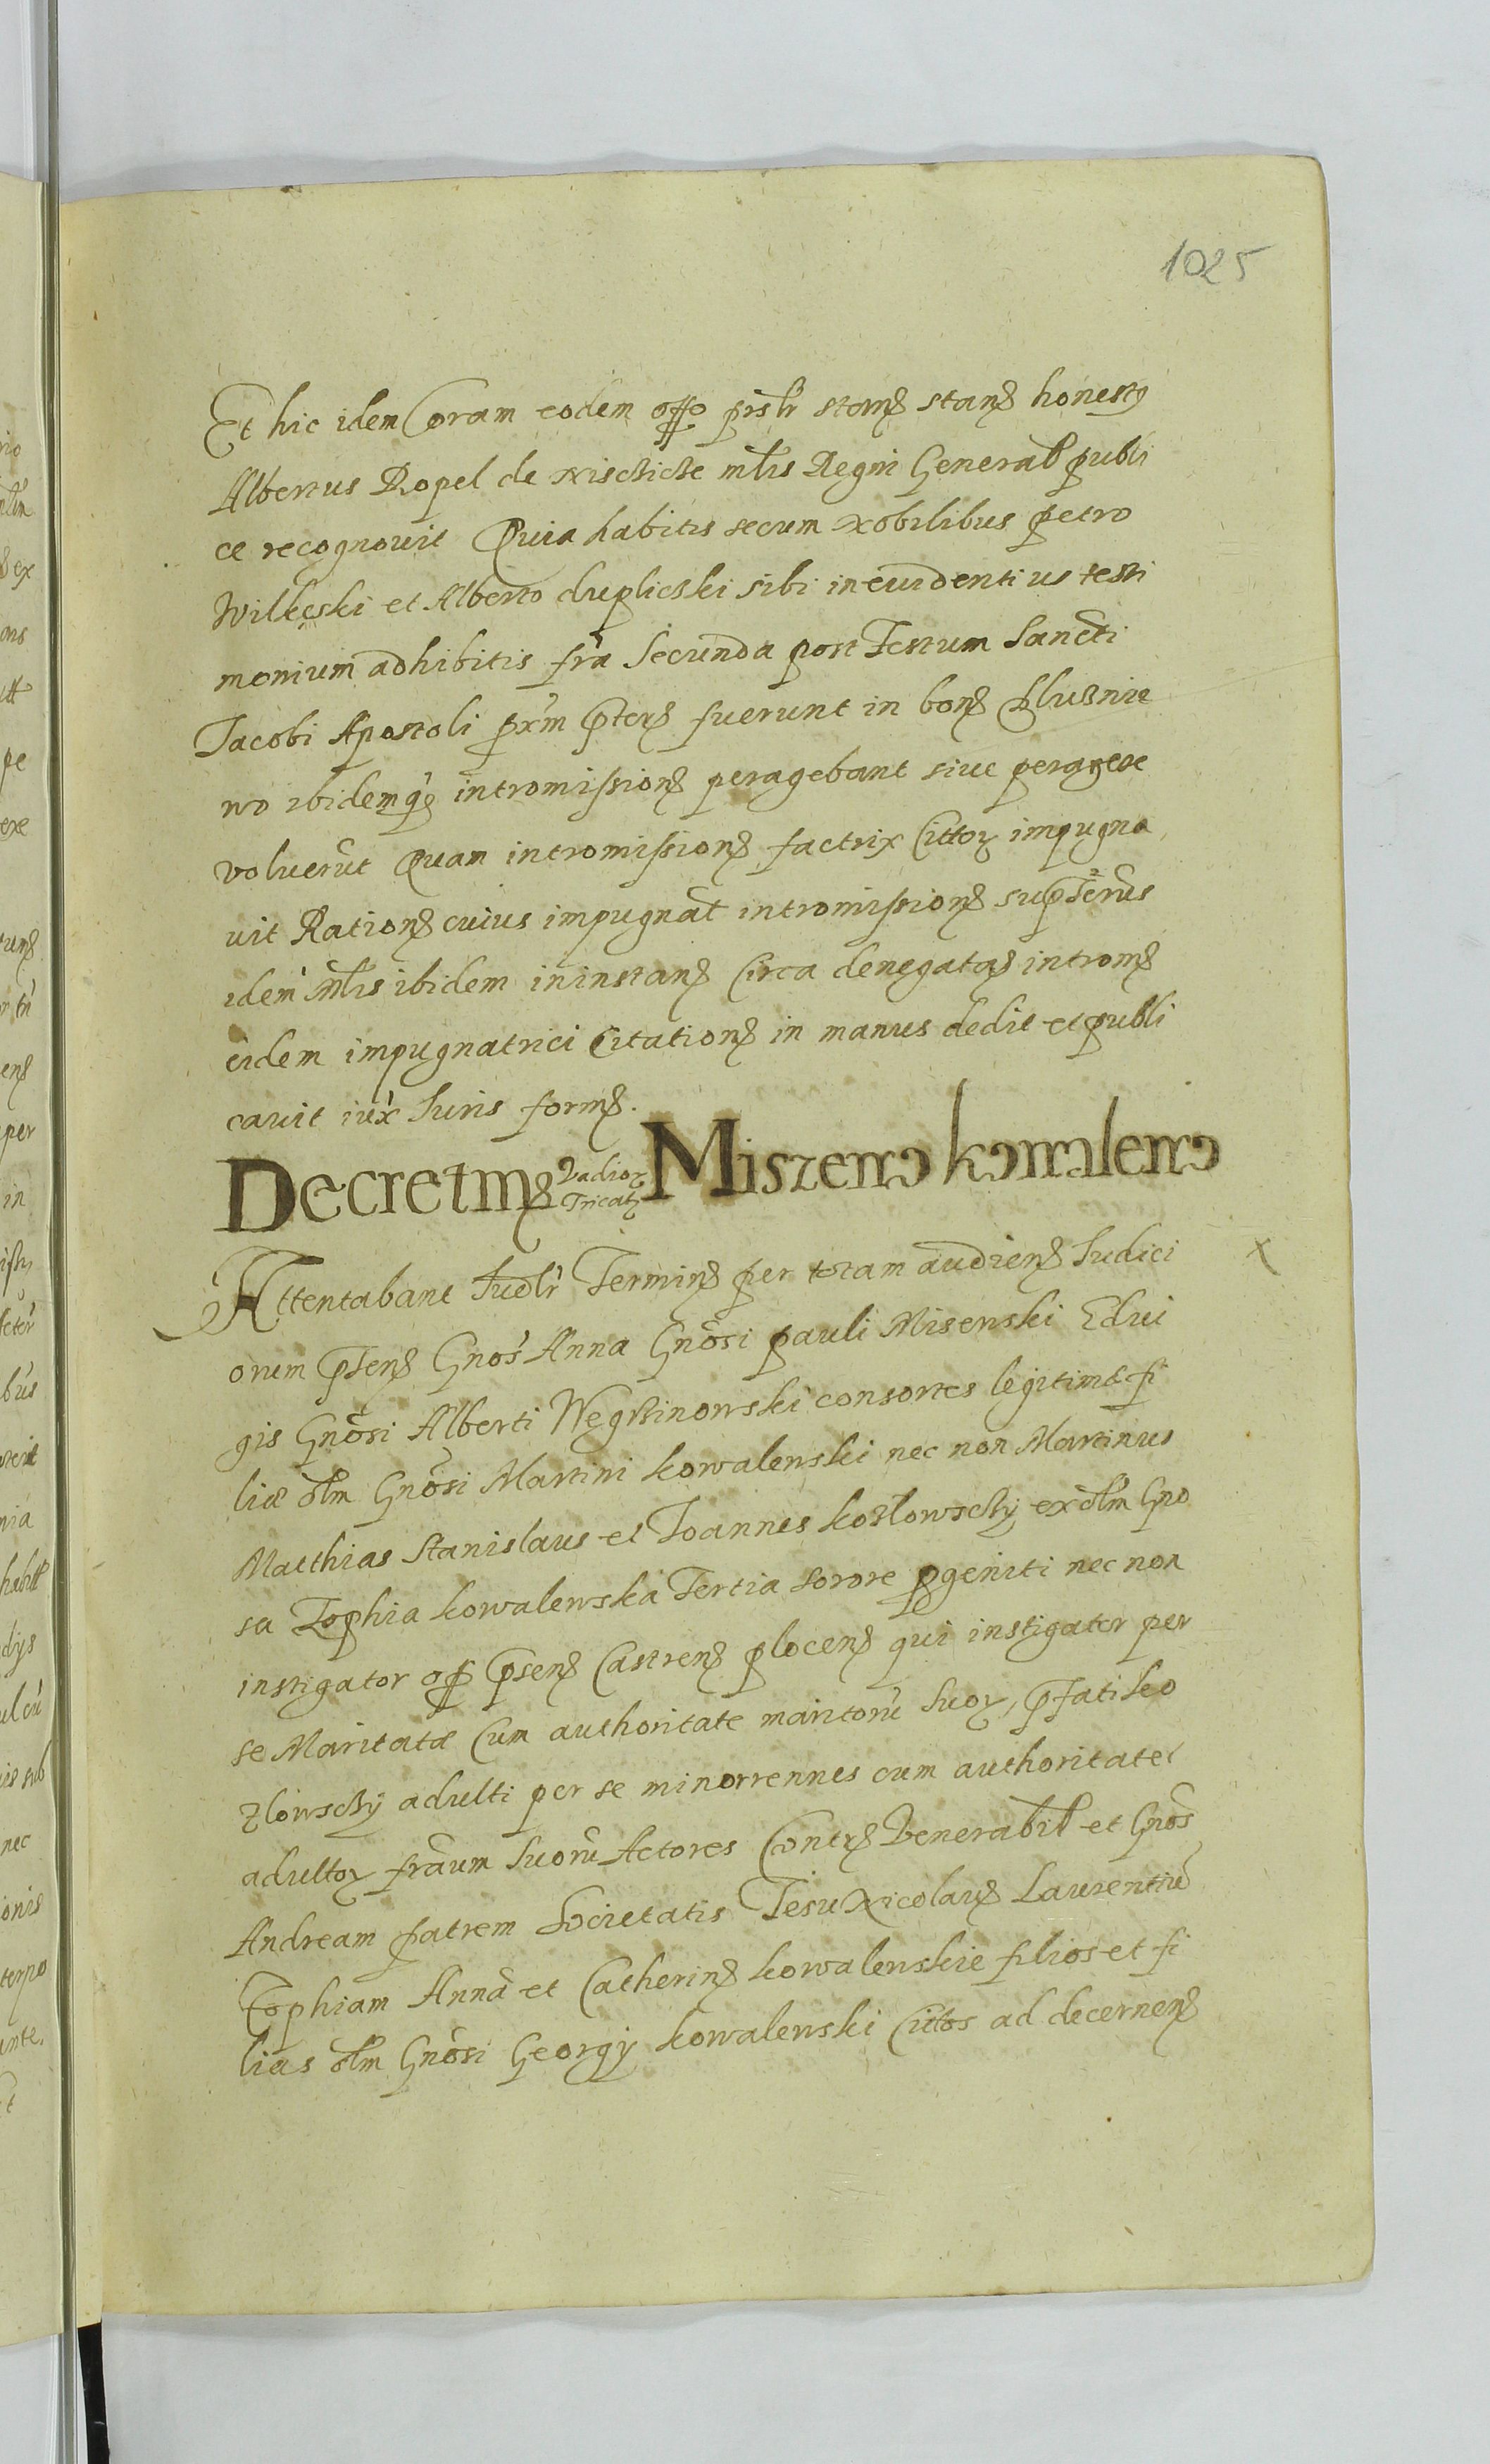 1025
Et hic idem Coram eodem offo pnsti stans stans honestus
Albertus Ropel de Nischiche mtlis Regni General publi
ce recognovit Quia habitis secum Nobilibus Petro
Wilkęski et Alberto duplicski sibi in evidentius testi
monium adhibitis fra Secunda post Festum Sancti
Jacobi Apostoli pxm pter fuerunt in bon Kluznie
wo ibidemq intromission peragebant sive peragere
voluerut Quam intromission factrix Cittor impugna
vit Ration cuius impugnat intromission
idem Mtlis ibidem in instan Circa denegata introm
eidem impugnatrici Citation in manus dedit et publi
cavit iux Juris form.
Decretum Vadior Tricat Miszewo kowalewo
Attentabant Judlr Termin per totam audien Judici
orum psen Gnos Anna Gnosi Pauli Misewski Edvi
gis Gnosi Alberti Węgrzinowski consortes legitimæ fi
liæ olm Gnosi Martini kowalewski nec non Martinus
Matthias Stanislaus et Joannes kozlowsczy ex olm Gno
sa Zophia kowalewska Tertia sorore pgeniti nec non
instigator off psen Castren Plocen qui instigator per
se Maritatæ Cum authoritate maritoru Suor, pfati ko
zlowsczy adulti per se minorennes cum authoritate
adultor fraum Suoru Actores Contr Venerabil et Gnos
Andream patrem Societatis Jesu Nicolau Laurentiu
Zophiam Anna et Catherin kowalewskie filios et fi
lias olm Gnosi Georgij kowalewski Cittos ad decernen